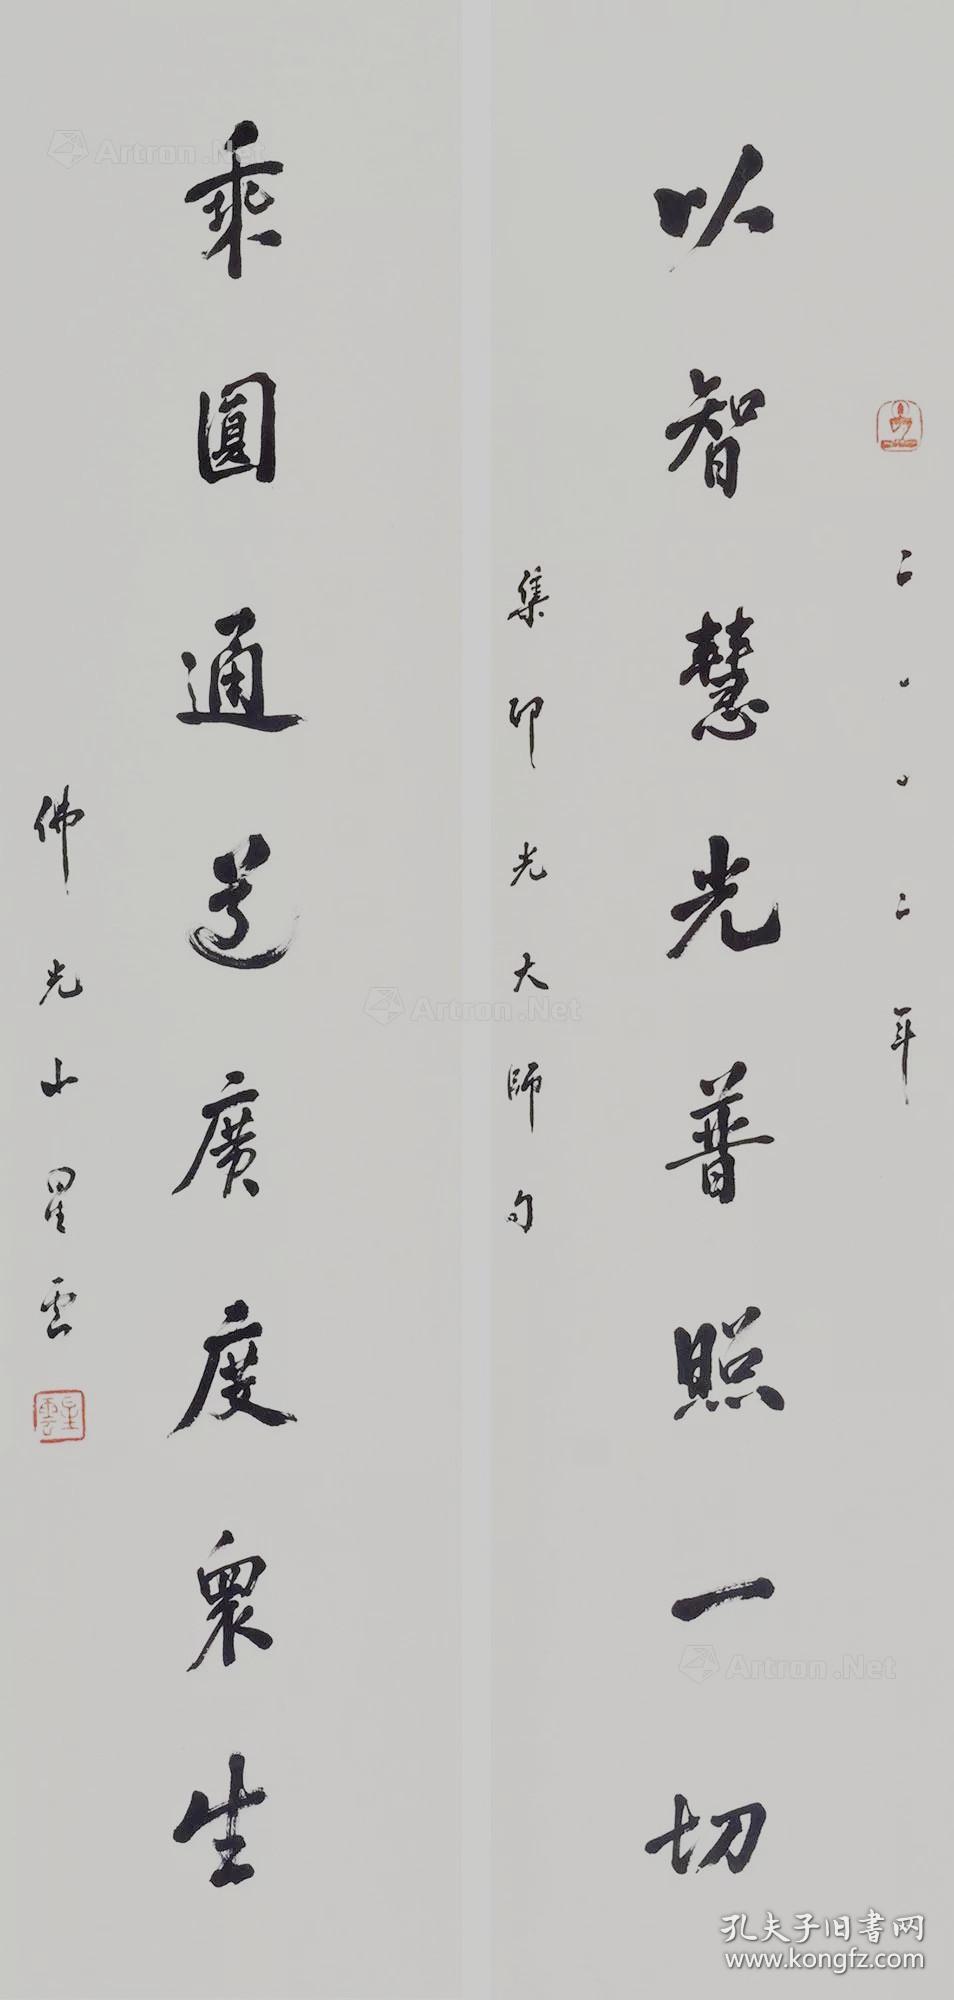 二〇〇二年
以智慧光普照一切
集印光大師句
乘圓通道廣度眾生
佛光山星雲
星雲
Artron.Net
Artron.Net
Artron.Net
孔夫子旧書网
www.kongfz.com